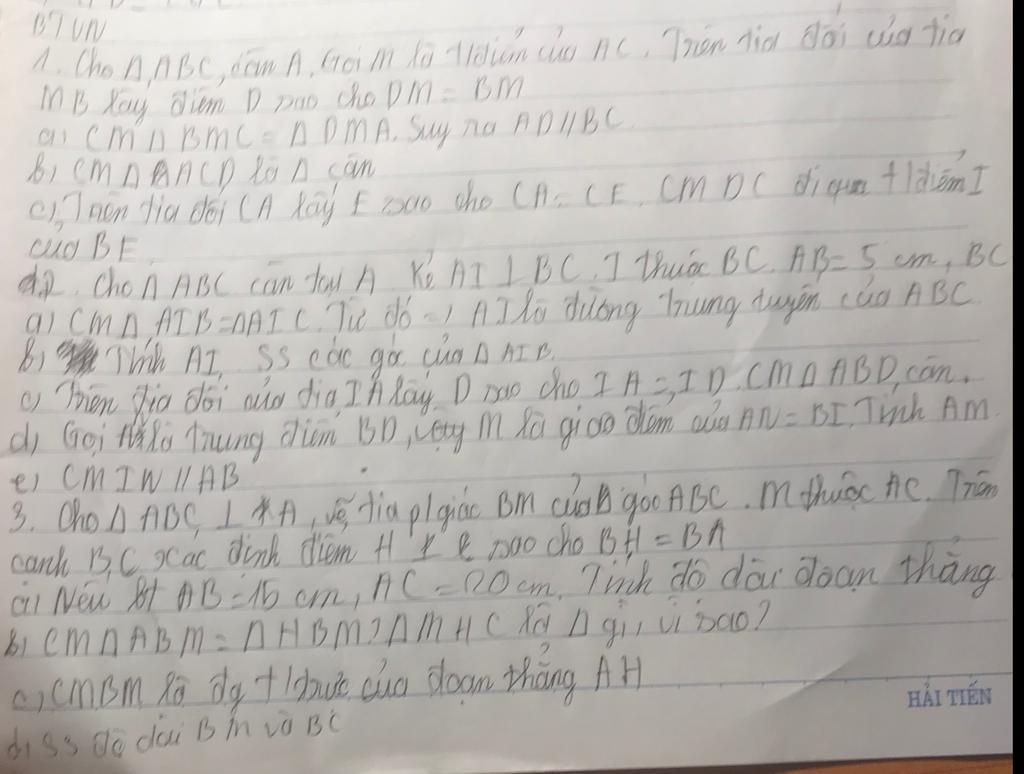 BTVN
1. Cho Δ ABC, cân A. Gọi M là t/điểm của AC. Trên tia đối của tia
MB lấy điểm D sao cho DM = BM
a) CM Δ BMC = Δ DMA. Suy ra AD // BC
b) CM Δ ACD là Δ cân
c) Trên tia đối CA lấy E sao cho CA = CE. CM DC đi qua t/điểm I
của BE
2. Cho Δ ABC cân tại A. Kẻ AI ⊥ BC. I thuộc BC. AB = 5 cm, BC
a) CM Δ AIB = ΔAIC. Từ đó => AI là đường trung tuyến của ABC
b) Tính AI. SS các góc của Δ AIB.
c) Trên tia đối của tia IA lấy D sao cho IA = ID. CM Δ ABD cân.
d) Gọi là trung điểm BD, M là giao điểm của AN = BI. Tính AM.
e) CM IN // AB
3. Cho Δ ABC ⊥ A, vẽ tia p/giác BM của góc ABC. M thuộc AC. Trên
cạnh BC xác định điểm H sao cho BH = BA
a) Nếu AB = 15 cm, AC = 20 cm. Tính độ dài đoạn thẳng
b) CM Δ ABM = Δ HBM? Δ MHC là Δ gì, vì sao?
c) CM BM là đg t/trực của đoạn thẳng AH
d) SS độ dài BM và BC
HẢI TIẾN